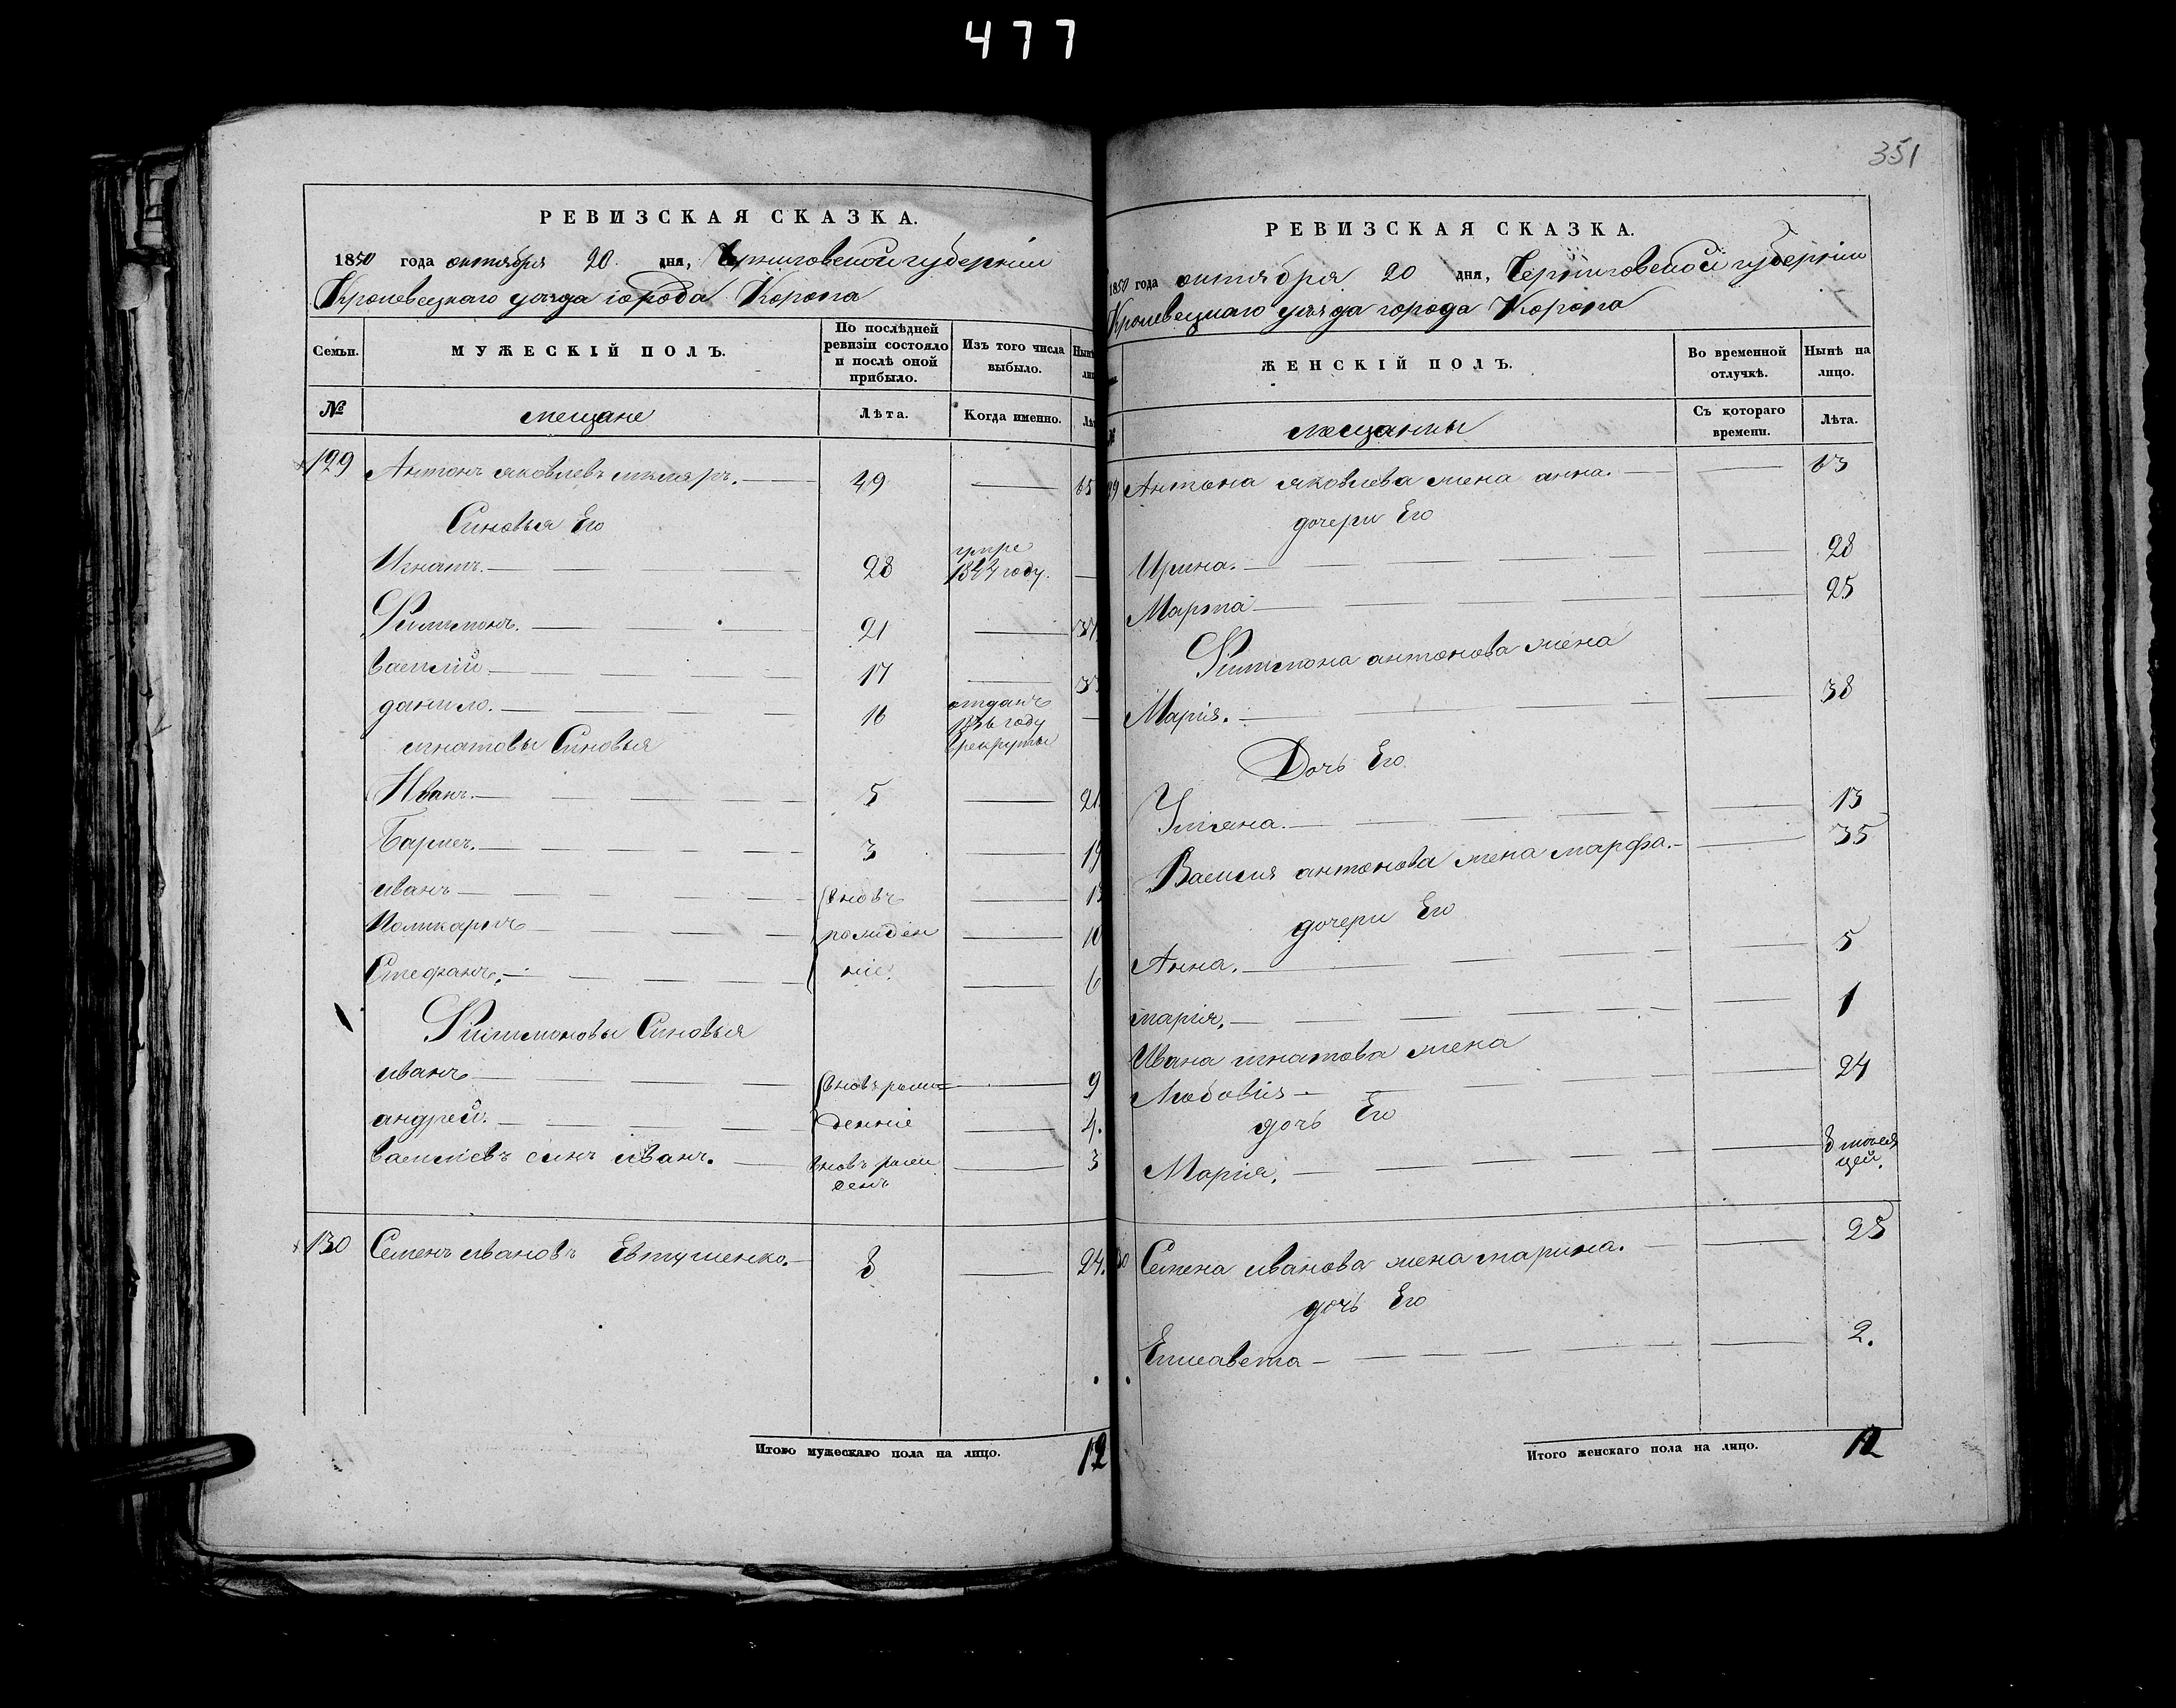 477
РЕВИЗСКАЯ СКАЗКА.
1850 года октября 20 дня, Черниговской губерніи
Кролевецкаго уѣзда города Коропа
Семьи.
МУЖЕСКІЙ ПОЛЪ.
По послѣдней ревизіи состояло и послѣ оной прибыло.
Изъ того числа выбыло.
№
мещане
Лѣта.
Когда именно.
129 Антонъ яковлевъ 49 65
Синовья Его
Игнатъ. 28 умре 1844 году.
Филимонъ. 21 37
василій 17 33
данило. 16 отданъ 1836 году врекруты
игнатовы Синовья
Иванъ. 5 21
3 19
иванъ вновь 13
Поликарпъ рожден 10
Стефанъ. ніе. 6
Филимоновы Синовья
иванъ вновь рож= 9
андрей. денніе 4.
василіевъ синъ иванъ. вновь рожденъ 3
130 Семенъ ивановъ Евтушенко. 8 24.
Итого мужескаго пола на лицо. 12
351
РЕВИЗСКАЯ СКАЗКА.
1850 года октября 20 дня, Черниговской губерніи
Кролевецкаго уѣзда города Коропа
ЖЕНСКІЙ ПОЛЪ.
Во временной отлучкѣ.
Нынѣ на лицо.
мещанки
Съ котораго времени.
Лѣта.
Антона яковлева жена анна. 63
дочери Его
Ирина. 28
Марта 25
Филимона антонова жена
Марія. 38
Дочь Его
Уліяна. 13
Василия антонова жена марфа. 35
дочери Его
Анна. 5
марія. 1
Ивана игнатова жена
Любовія 24
дочь Его
Марія. 8 месяцей.
Семена иванова жена марина. 25
дочь Его
Елисавета 2.
Итого женскаго пола на лицо. 12